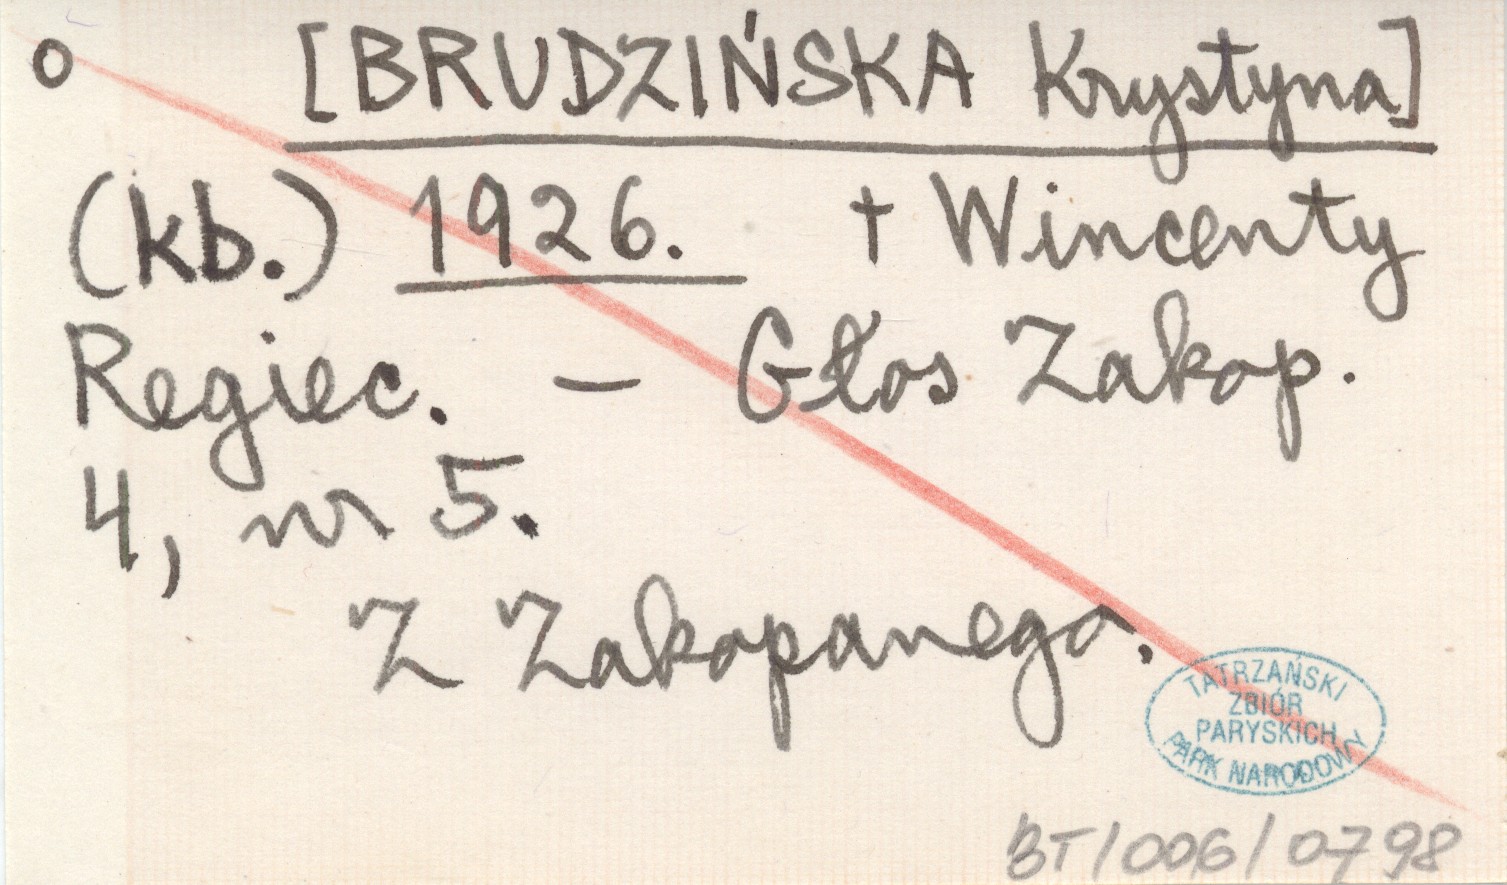 o [BRUDZIŃSKA Krystyna]
(kb.) 1926. † Wincenty
Regiec. – Głos Zakop.
4, nr 5.
Z Zakopanego.
TATRZAŃSKI
ZBIÓR
PARYSKICH
PARK NARODOWY
BT/006/0798